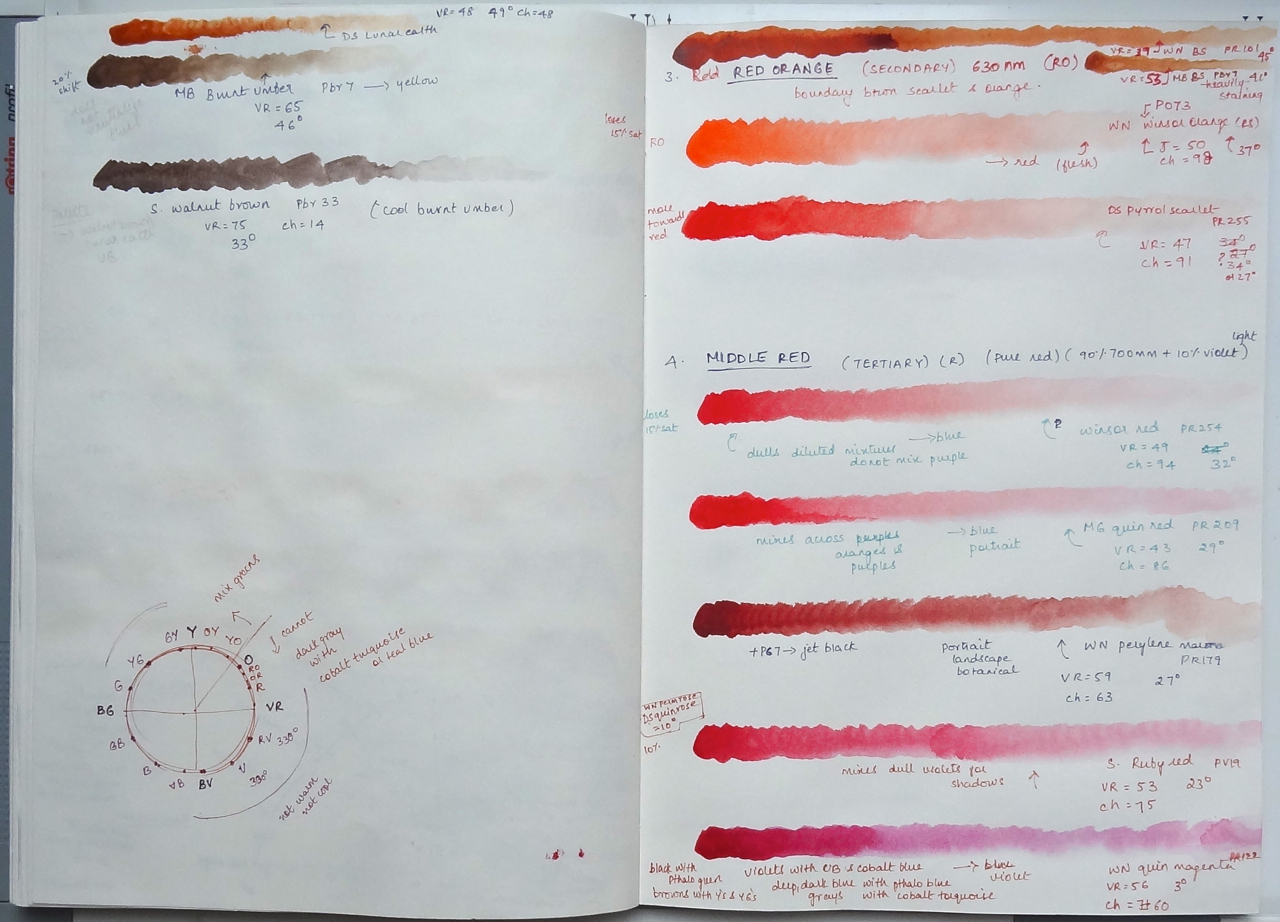 VR=48 49° ch=48
DS Lunar earth
20% shift
MB Burnt umber Pbr7 → yellow
VR = 65
46°
S. walnut brown Pbr 33 (cool burnt umber)
VR = 75 ch = 14
33°
mix greens
cannot
dark gray
with
cobalt turquoise
or teal blue
GY Y OY YO
YG O
RO
OR
G R
BG VR
GB RV 330°
B V
VB BV 330°
not warm
not cool
VR = 39 WN BS PR101
45°
3. Red RED ORANGE (SECONDARY) 630 nm (RO)
boundary btwn scarlet & orange.
VR = 53 MB BS Pbr7 41°
heavily
staining
loses
15% sat
RO
PO73
WN Winsor Orange (RS)
J = 50 37°
ch = 98
→ red (flesh)
more
toward
red
DS Pyrrol scarlet
PR255
VR = 47
ch = 91
? 27°
34°
or 27°
4. MIDDLE RED (TERTIARY) (R) (Pure red) (90% 700nm + 10% violet)
light
loses
15% sat
dulls diluted mixtures → blue
donot mix purple
winsor red PR254
VR = 49
ch = 94 32°
mixes across purples → blue
oranges & portrait
purples
MG quin red PR209
VR = 43 29°
ch = 86
+ PG7 → jet black
portrait
landscape
botanical
WN perylene maroon
PR179
VR = 59 27°
ch = 63
WN Perm rose
DS quin rose
= 10°
10%
mixes dull violets for
shadows
S. Ruby red PV19
VR = 53 23°
ch = 75
black with
Pthalo green
browns with Y's & YG's
violets with UB & cobalt blue → blue
violet
deep, dark blue with pthalo blue
grays with cobalt turquoise
WN quin magenta PR122
VR = 56 3°
ch = 60